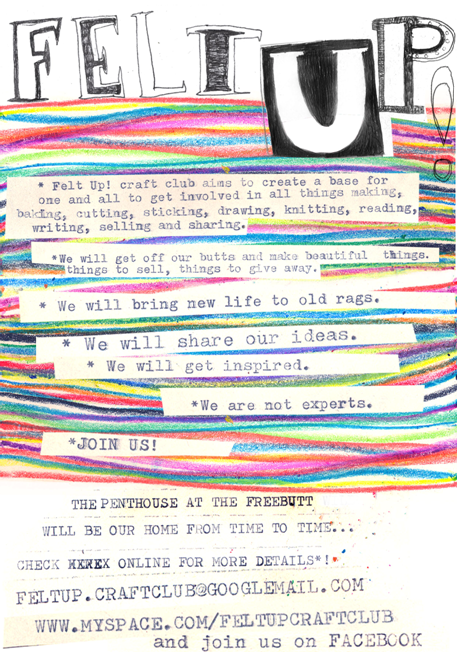 FELT UP!
* Felt Up! craft club aims to create a base for
one and all to get involved in all things making,
baking, cutting, sticking, drawing, knitting, reading,
writing, selling and sharing.
*We will get off our butts and make beautiful things.
things to sell, things to give away.
* We will bring new life to old rags.
* We will share our ideas.
* We will get inspired.
*We are not experts.
*JOIN US!
THE PENTHOUSE AT THE FREEBUTT
WILL BE OUR HOME FROM TIME TO TIME...
CHECK ONLINE FOR MORE DETAILS*!
FELTUP.CRAFTCLUB@GOOGLEMAIL.COM
WWW.MYSPACE.COM/FELTUPCRAFTCLUB
and join us on FACEBOOK